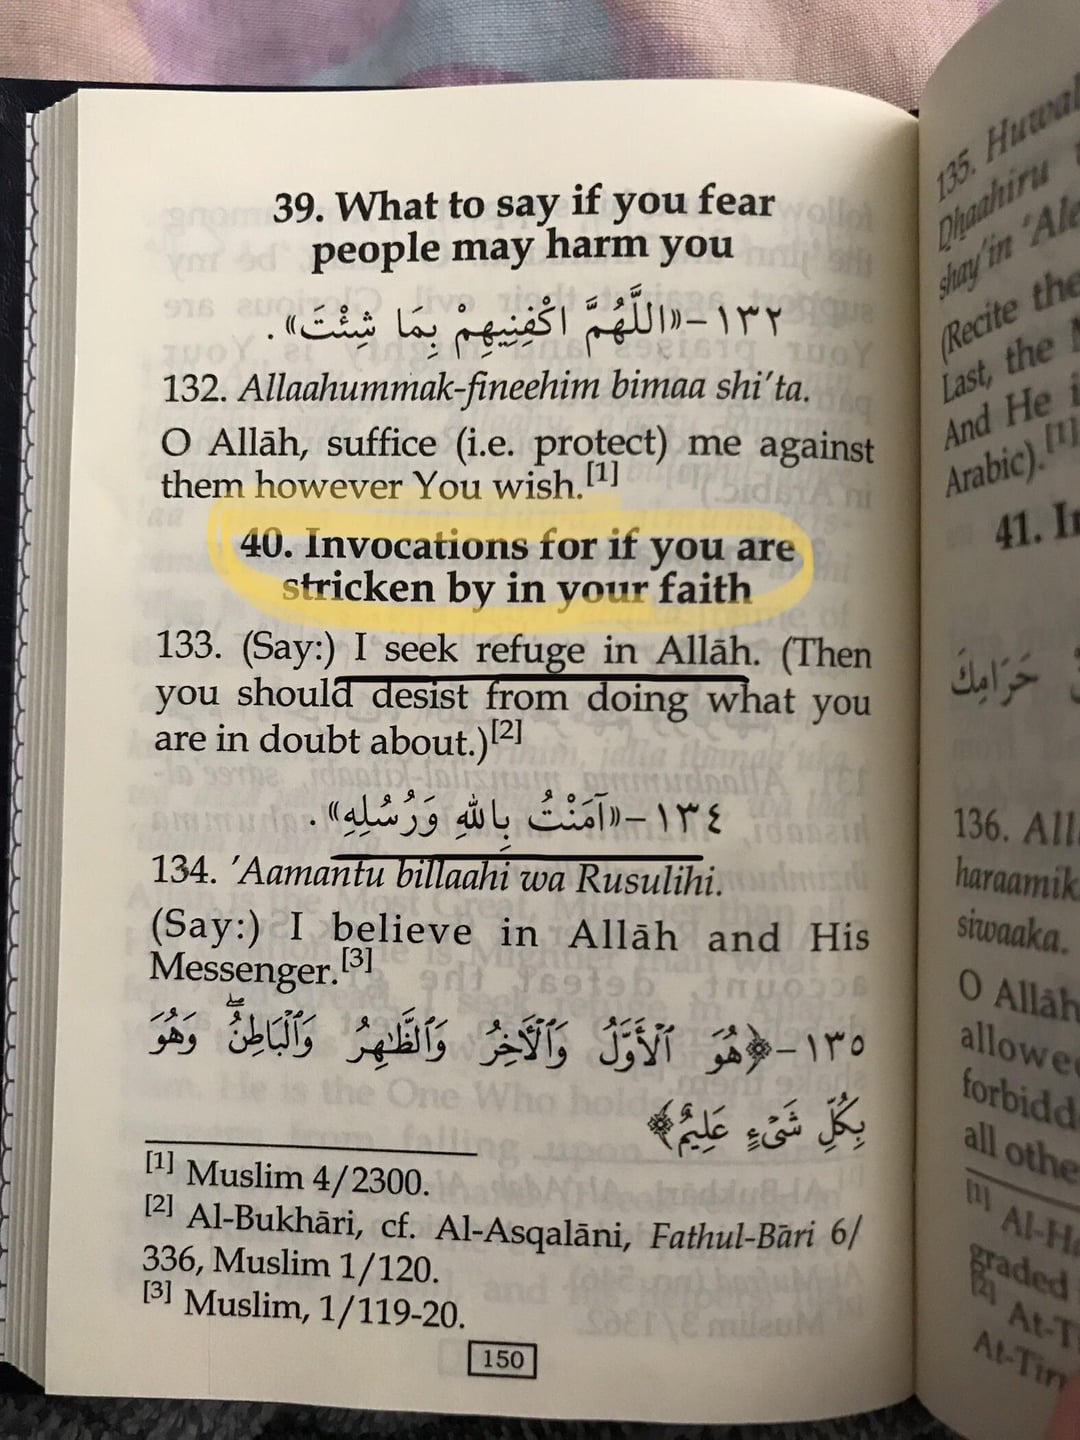 39. What to say if you fear
people may harm you
١٣٢-«اللَّهُمَّ اكْفِنِيهِمْ بِمَا شِئْتَ».
132. Allaahummak-fineehim bimaa shi'ta.
O Allāh, suffice (i.e. protect) me against
them however You wish.[1]
40. Invocations for if you are
stricken by in your faith
133. (Say:) I seek refuge in Allāh. (Then
you should desist from doing what you
are in doubt about.)[2]
١٣٤-«آمَنْتُ بِاللهِ وَرُسُلِهِ».
134. 'Aamantu billaahi wa Rusulihi.
(Say:) I believe in Allāh and His
Messenger.[3]
١٣٥-﴿هُوَ ٱلْأَوَّلُ وَٱلْأَخِرُ وَٱلظَّـٰهِرُ وَٱلْبَاطِنُ ۖ وَهُوَ
بِكُلِّ شَىْءٍ عَلِيمٌ﴾
[1] Muslim 4/2300.
[2] Al-Bukhāri, cf. Al-Asqalāni, Fathul-Bāri 6/
336, Muslim 1/120.
[3] Muslim, 1/119-20.
150
135.
Dhaahiru
shay'in
(Recite the
Last, the
And He
Arabic).[1]
41.
حَرَامِكَ
136.
haraamik
siwaaka.
O Allāh
allowed
forbidd
all othe
[1]
graded
[2] At-T
At-Tirm